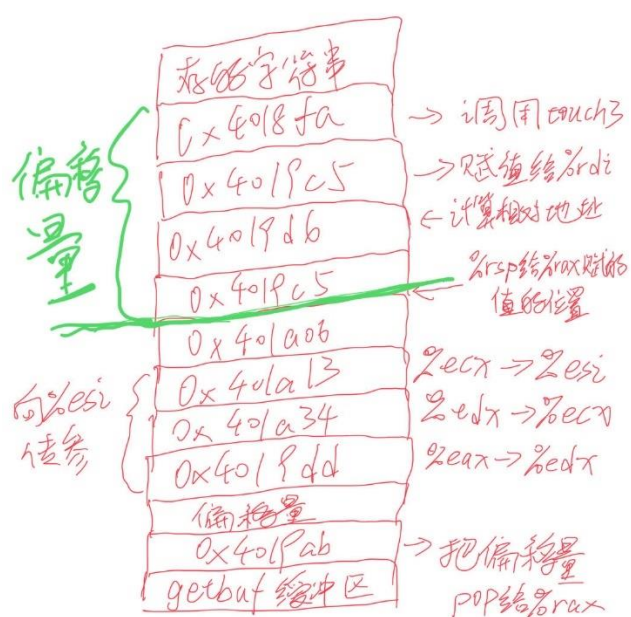 存的字符串
0x4018fa → 调用touch3
0x4019c5 → 赋值给%rdi
0x4019d6 ← 计算相对地址
0x4019c5
%rsp给%rax赋的
值的位置
偏移
量
0x401a06
0x401a13 %ecx→%esi
0x401a34 %edx→%ecx
0x4019dd %eax→%edx
向%esi
传参
偏移量
0x4019ab → 把偏移量
pop给%rax
getbuf缓冲区